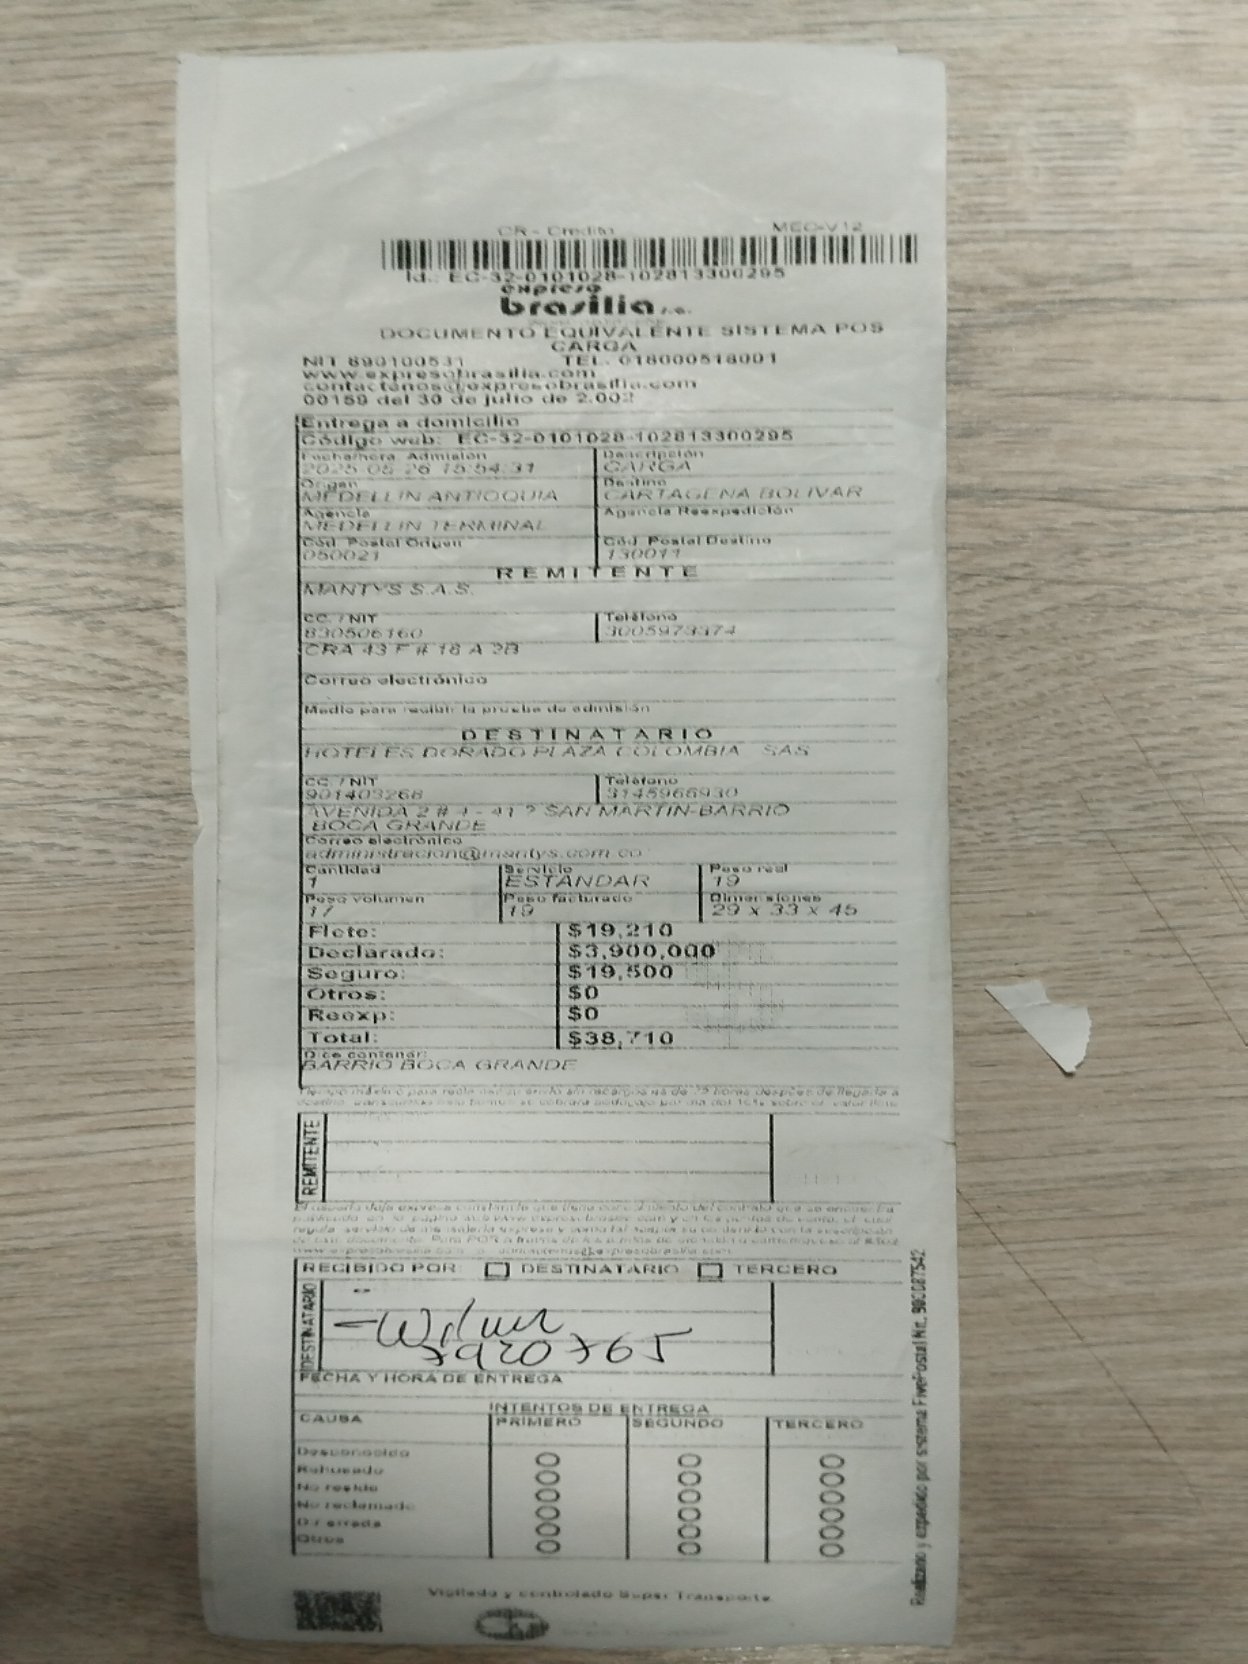 CR - Credito MEO-V12
Id.: EC-32-0101028-102813300295
expreso
brasilia s.a.
DOCUMENTO EQUIVALENTE SISTEMA POS
CARGA
NIT 890100531 TEL. 018000518001
www.expresobrasilia.com
contactenos@expresobrasilia.com
00159 del 30 de julio de 2.002
Entrega a domicilio
Código web: EC-32-0101028-102813300295
Fecha/hora Admisión Descripción
2025 05 26 15:54:31 CARGA
Origen Destino
MEDELLIN ANTIOQUIA CARTAGENA BOLIVAR
Agencia Agencia Reexpedición
MEDELLIN TERMINAL
Cód. Postal Origen Cód. Postal Destino
050021 130011
REMITENTE
MANTYS S.A.S.
CC. / NIT Teléfono
830506160 3005973374
CRA 43 F # 18 A 2B
Correo electrónico
Medio para recibir la prueba de admisión
DESTINATARIO
HOTELES DORADO PLAZA COLOMBIA SAS
CC. / NIT Teléfono
901403268 3145966930
AVENIDA 2 # 4 - 41 ? SAN MARTIN-BARRIO
BOCA GRANDE
Correo electrónico
administracion@mantys.com.co
Cantidad Servicio Peso real
1 ESTANDAR 19
Peso volumen Peso facturado Dimensiones
17 19 29 x 33 x 45
Flete: $19,210
Declarado: $3,900,000
Seguro: $19,500
Otros: $0
Reexp: $0
Total: $38,710
Dice contener:
BARRIO BOCA GRANDE
REMITENTE
RECIBIDO POR: DESTINATARIO TERCERO
DESTINATARIO
Wilmer
7920765
FECHA Y HORA DE ENTREGA
INTENTOS DE ENTREGA
CAUSA PRIMERO SEGUNDO TERCERO
Desconocido
Rehusado
No reside
No reclamado
Dir errada
Otros
Vigilado y controlado Super Transporte
Realizado y expedido por sistema FivePostal Nit. 900087542